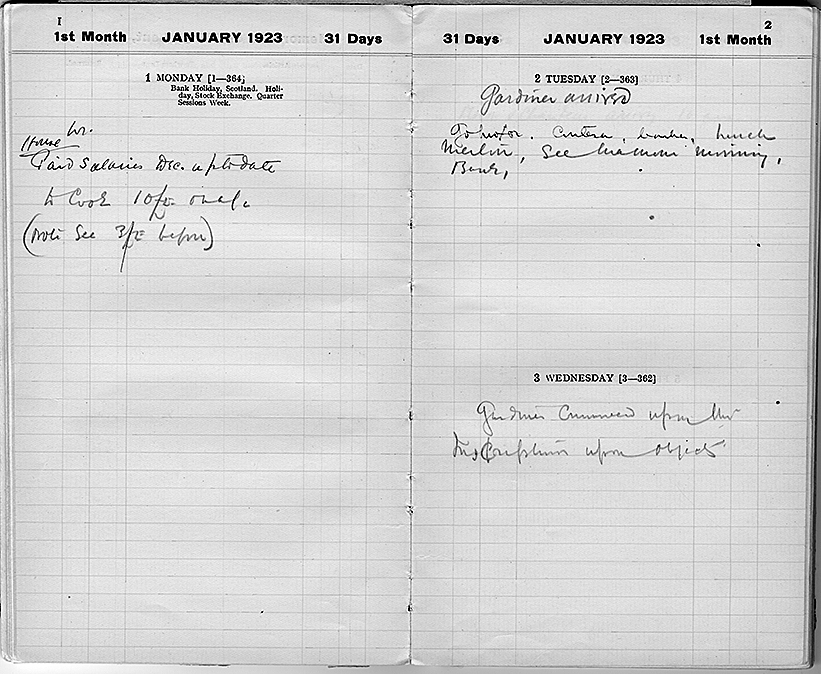 1
1st Month JANUARY 1923 31 Days
1 MONDAY [1—364]
Bank Holiday, Scotland. Holi-
day, Stock Exchange. Quarter
Sessions Week.
House
Paid Salaries Dec. up to date
to Cook
(Note See before)
2
31 Days JANUARY 1923 1st Month
2 TUESDAY [2—363]
Gardiner arrived
Lunch
Merton, See morning,
Bank,
3 WEDNESDAY [3—362]
Gardiner Commenced upon the
Inscriptions upon objects